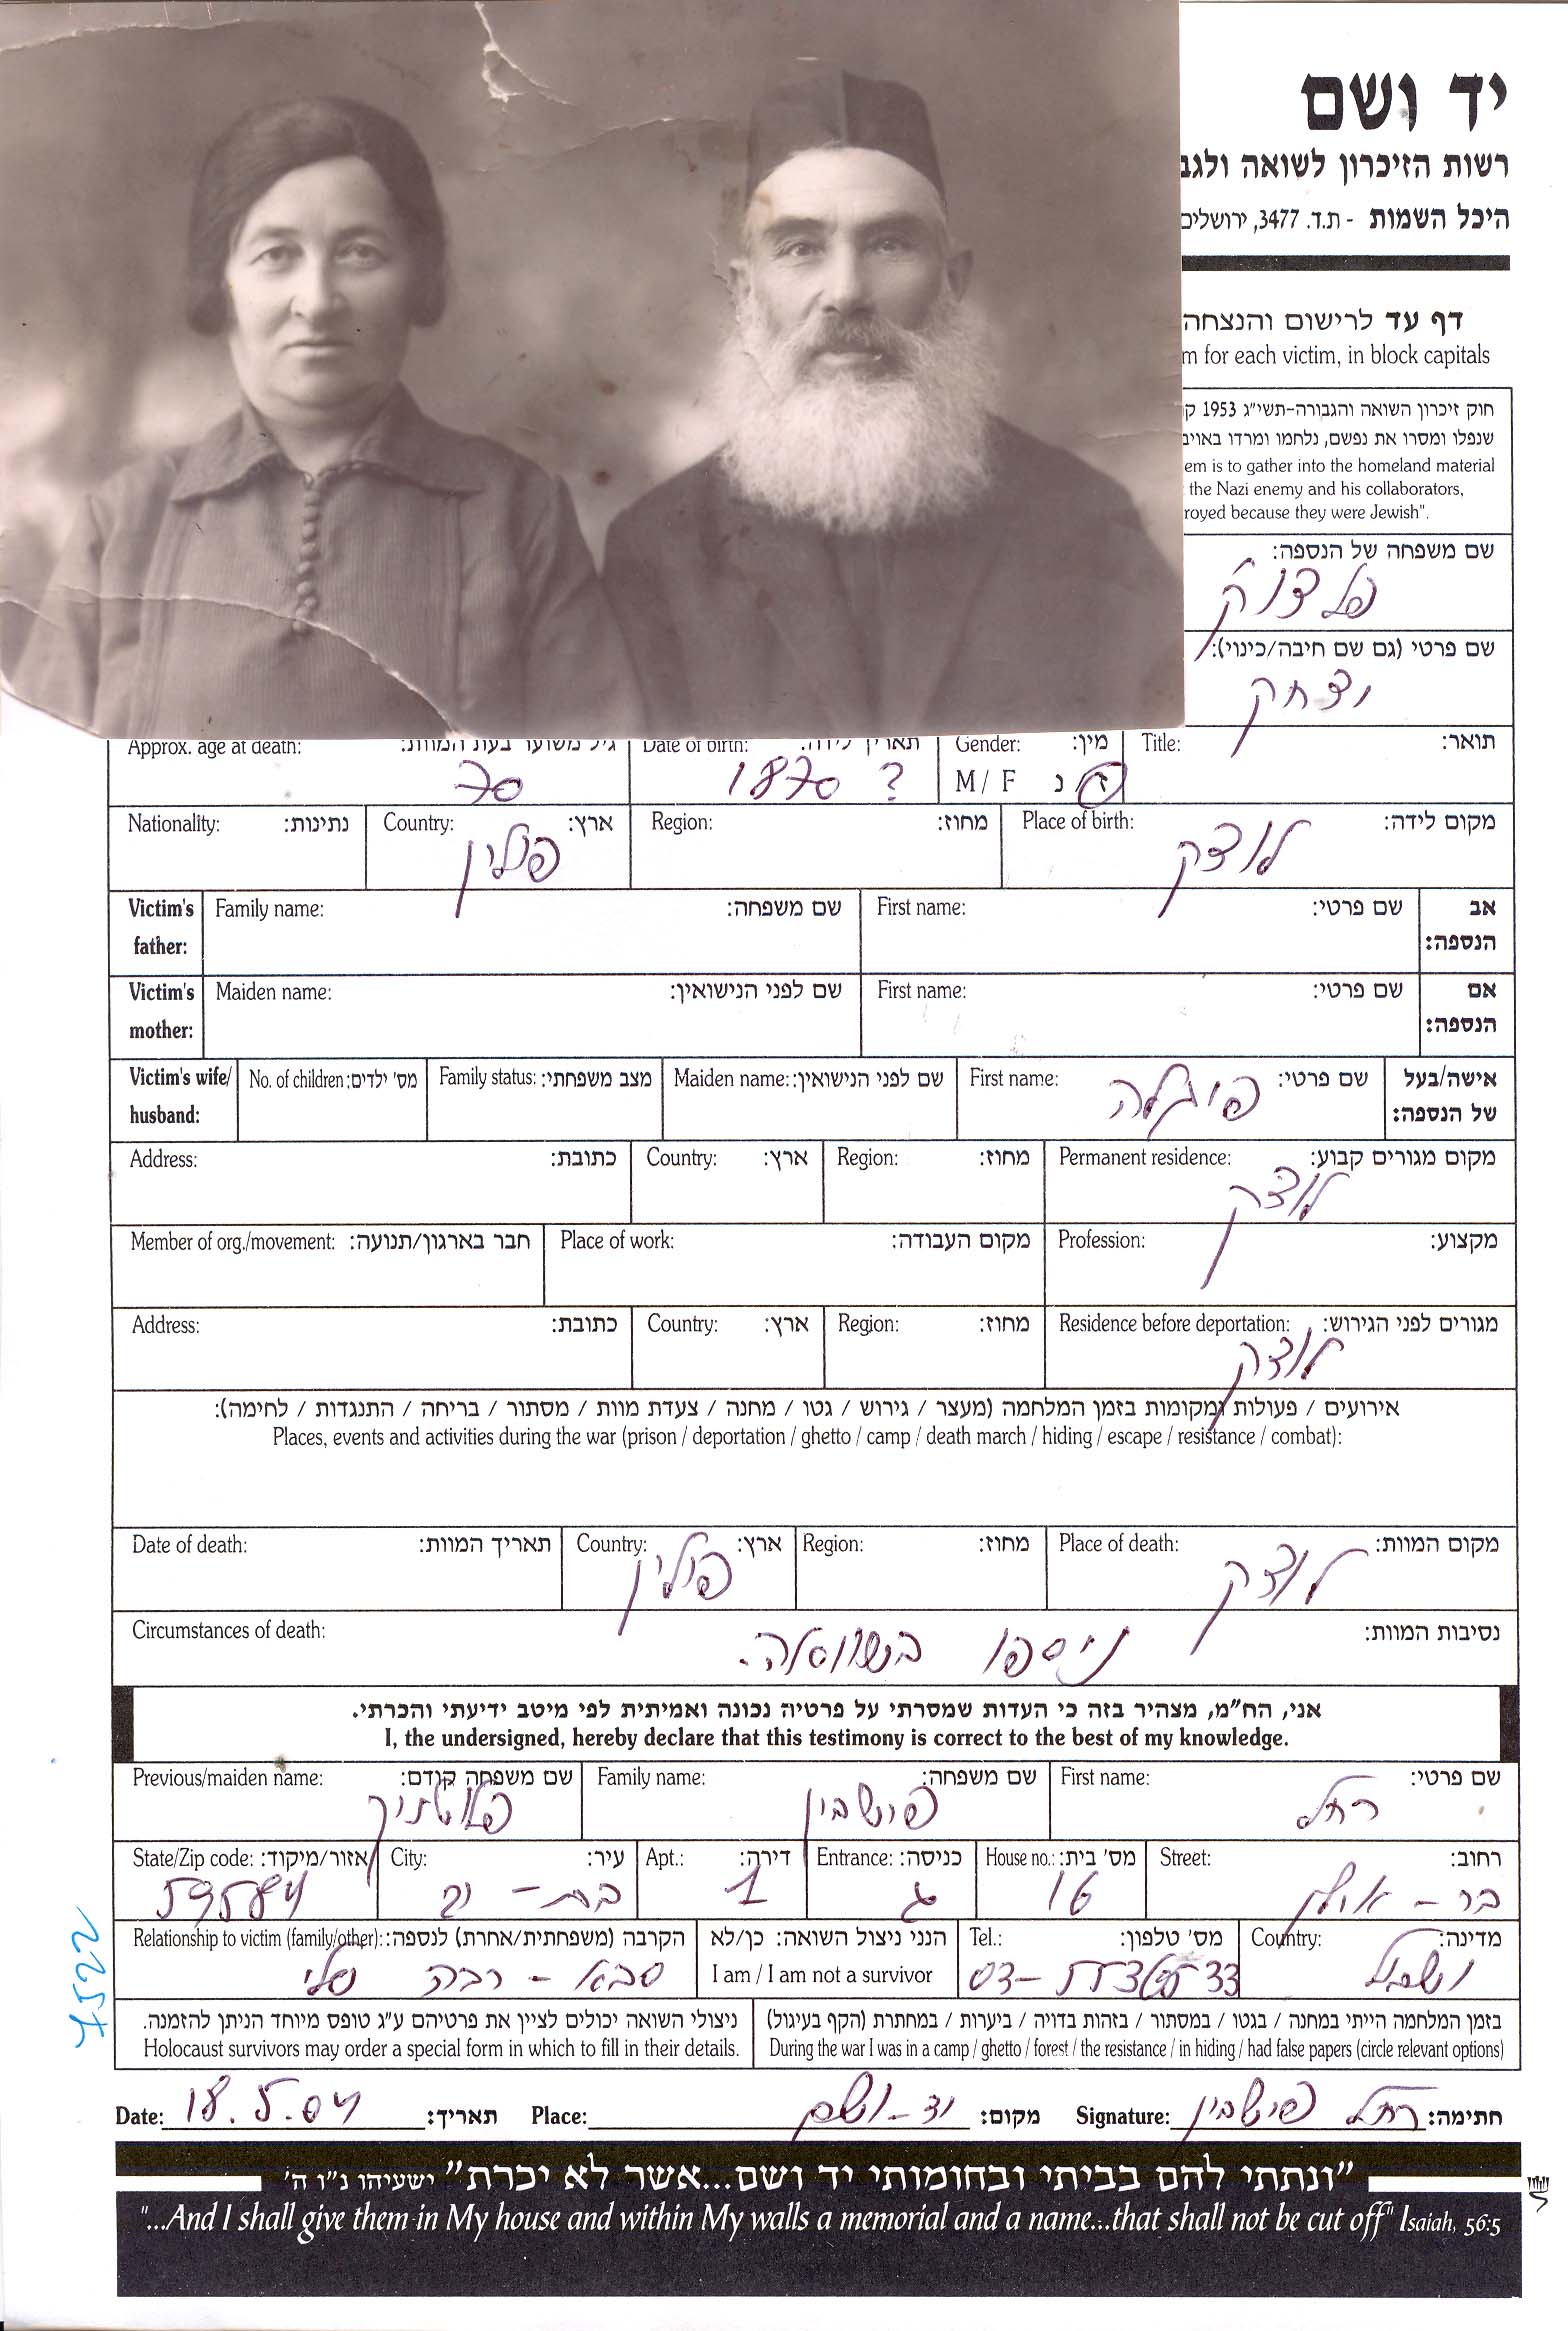 יד ושם
רשות הזיכרון לשואה ולגב
היכל השמות - ת.ד. 3477, ירושלים
דף עד לרישום והנצחה
m for each victim, in block capitals
חוק זיכרון השואה והגבורה-תשי"ג 1953 ק
שנפלו ומסרו את נפשם, נלחמו ומרדו באויב
em is to gather into the homeland material
the Nazi enemy and his collaborators,
royed because they were Jewish".
שם משפחה של הנספה:
שם פרטי (גם שם חיבה/כינוי):
יצחק
Approx. age at death: גיל משוער בעת המוות: 70 Date of birth: תאריך לידה: 1870 ? Gender: מין: M / F ז נ Title: תואר:
Nationality: נתינות: Country: ארץ: פולין Region: מחוז: Place of birth: מקום לידה: לוצק
Victim's father: Family name: שם משפחה: First name: שם פרטי: אב הנספה:
Victim's mother: Maiden name: שם לפני הנישואין: First name: שם פרטי: אם הנספה:
Victim's wife/ husband: No. of children: מס' ילדים: Family status: מצב משפחתי: Maiden name: שם לפני הנישואין: First name: שם פרטי: פייגלה אישה/בעל של הנספה:
Address: כתובת: Country: ארץ: Region: מחוז: Permanent residence: מקום מגורים קבוע: לוצק
Member of org./movement: חבר בארגון/תנועה: Place of work: מקום העבודה: Profession: מקצוע:
Address: כתובת: Country: ארץ: Region: מחוז: Residence before deportation: מגורים לפני הגירוש: לוצק
אירועים / פעולות ומקומות בזמן המלחמה (מעצר / גירוש / גטו / מחנה / צעדת מוות / מסתור / בריחה / התנגדות / לחימה):
Places, events and activities during the war (prison / deportation / ghetto / camp / death march / hiding / escape / resistance / combat):
Date of death: תאריך המוות: Country: ארץ: פולין Region: מחוז: Place of death: מקום המוות: לוצק
Circumstances of death: נסיבות המוות: ניספו בשוואה.
אני, הח"מ, מצהיר בזה כי העדות שמסרתי על פרטיה נכונה ואמיתית לפי מיטב ידיעתי והכרתי.
I, the undersigned, hereby declare that this testimony is correct to the best of my knowledge.
Previous/maiden name: שם משפחה קודם: Family name: שם משפחה: פישביין First name: שם פרטי: רחל
State/Zip code: אזור/מיקוד: 59584 City: עיר: בת-ים Apt.: דירה: 1 Entrance: כניסה: ג House no.: מס' בית: 16 Street: רחוב: בר - אילן
Relationship to victim (family/other): הקרבה (משפחתית/אחרת) לנספה: סבא - רבה שלי הנני ניצול השואה: כן/לא I am / I am not a survivor Tel.: מס' טלפון: Country: מדינה: ישראל
ניצולי השואה יכולים לציין את פרטיהם ע"ג טופס מיוחד הניתן להזמנה. בזמן המלחמה הייתי במחנה / בגטו / במסתור / בזהות בדויה / ביערות / במחתרת (הקף בעיגול)
Holocaust survivors may order a special form in which to fill in their details. During the war I was in a camp / ghetto / forest / the resistance / in hiding / had false papers (circle relevant options)
Date: 18.5.04 תאריך: Place: יד-ושם מקום: Signature: רחל פישביין חתימה:
"ונתתי להם בביתי ובחומותי יד ושם...אשר לא יכרת" ישעיהו נ"ו ה'
"...And I shall give them in My house and within My walls a memorial and a name...that shall not be cut off" Isaiah, 56:5
7522